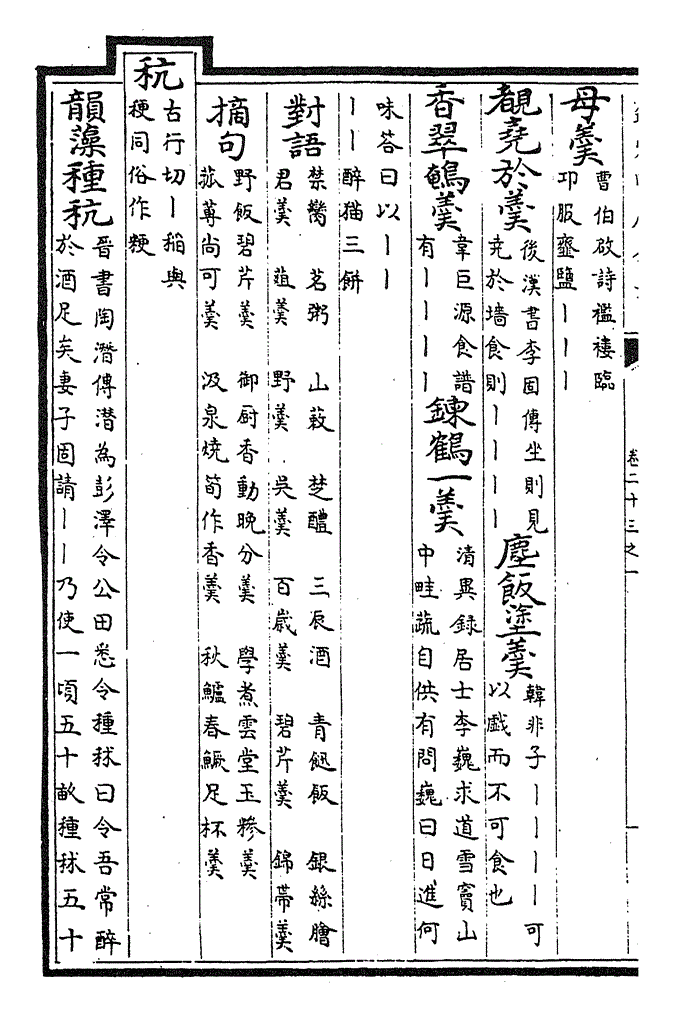 卷二十三之一
母羹
曹伯啟詩襤褸臨
卭服虀鹽｜｜｜
覩堯於羹
後漢書李固傳坐則見
堯於墻食則｜｜｜｜
塵飯塗羹
韓非子｜｜｜｜可
以戲而不可食也
香翠鶉羹
韋巨源食譜
有｜｜｜｜
鍊鶴一羹
清異録居士李巍求道雪竇山
中畦蔬自供有問巍曰日進何
味答曰以｜｜
｜｜醉猫三餅
對語
禁臠 茗粥 山蔌 楚醴 三辰酒 青䭀飯 銀絲膾
君羹 葅羹 野羹 吳羹 百歲羹 碧芹羹 錦帶羹
摘句
野飯碧芹羹 御厨香動晚分羹 學煮雲堂玉糝羹
菰蓴尚可羹 汲泉燒筍作香羹 秋鱸春鱖足杯羹
秔
古行切｜稻與
稉同俗作粳
韻藻種秔
晉書陶潛傳潛為彭澤令公田悉令種秫曰令吾常醉
於酒足矣妻子固請｜｜乃使一頃五十畝種秫五十